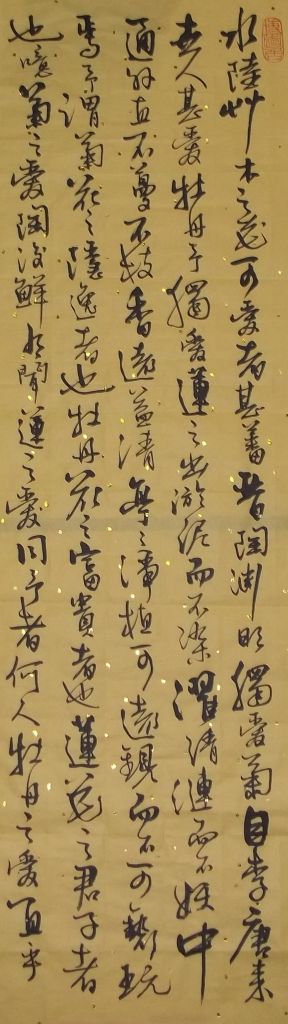 水陸艸木之花可愛者甚蕃晉陶淵明獨愛菊自李唐來
世人甚愛牡丹予獨愛蓮之出淤泥而不染濯清漣而不妖中
通外直不蔓不枝香遠益清亭〻淨植可遠觀而不可褻玩
焉予謂菊花之隱逸者也牡丹花之富貴者也蓮花之君子者
也噫菊之愛陶後鮮有聞蓮之愛同予者何人牡丹之愛宜乎